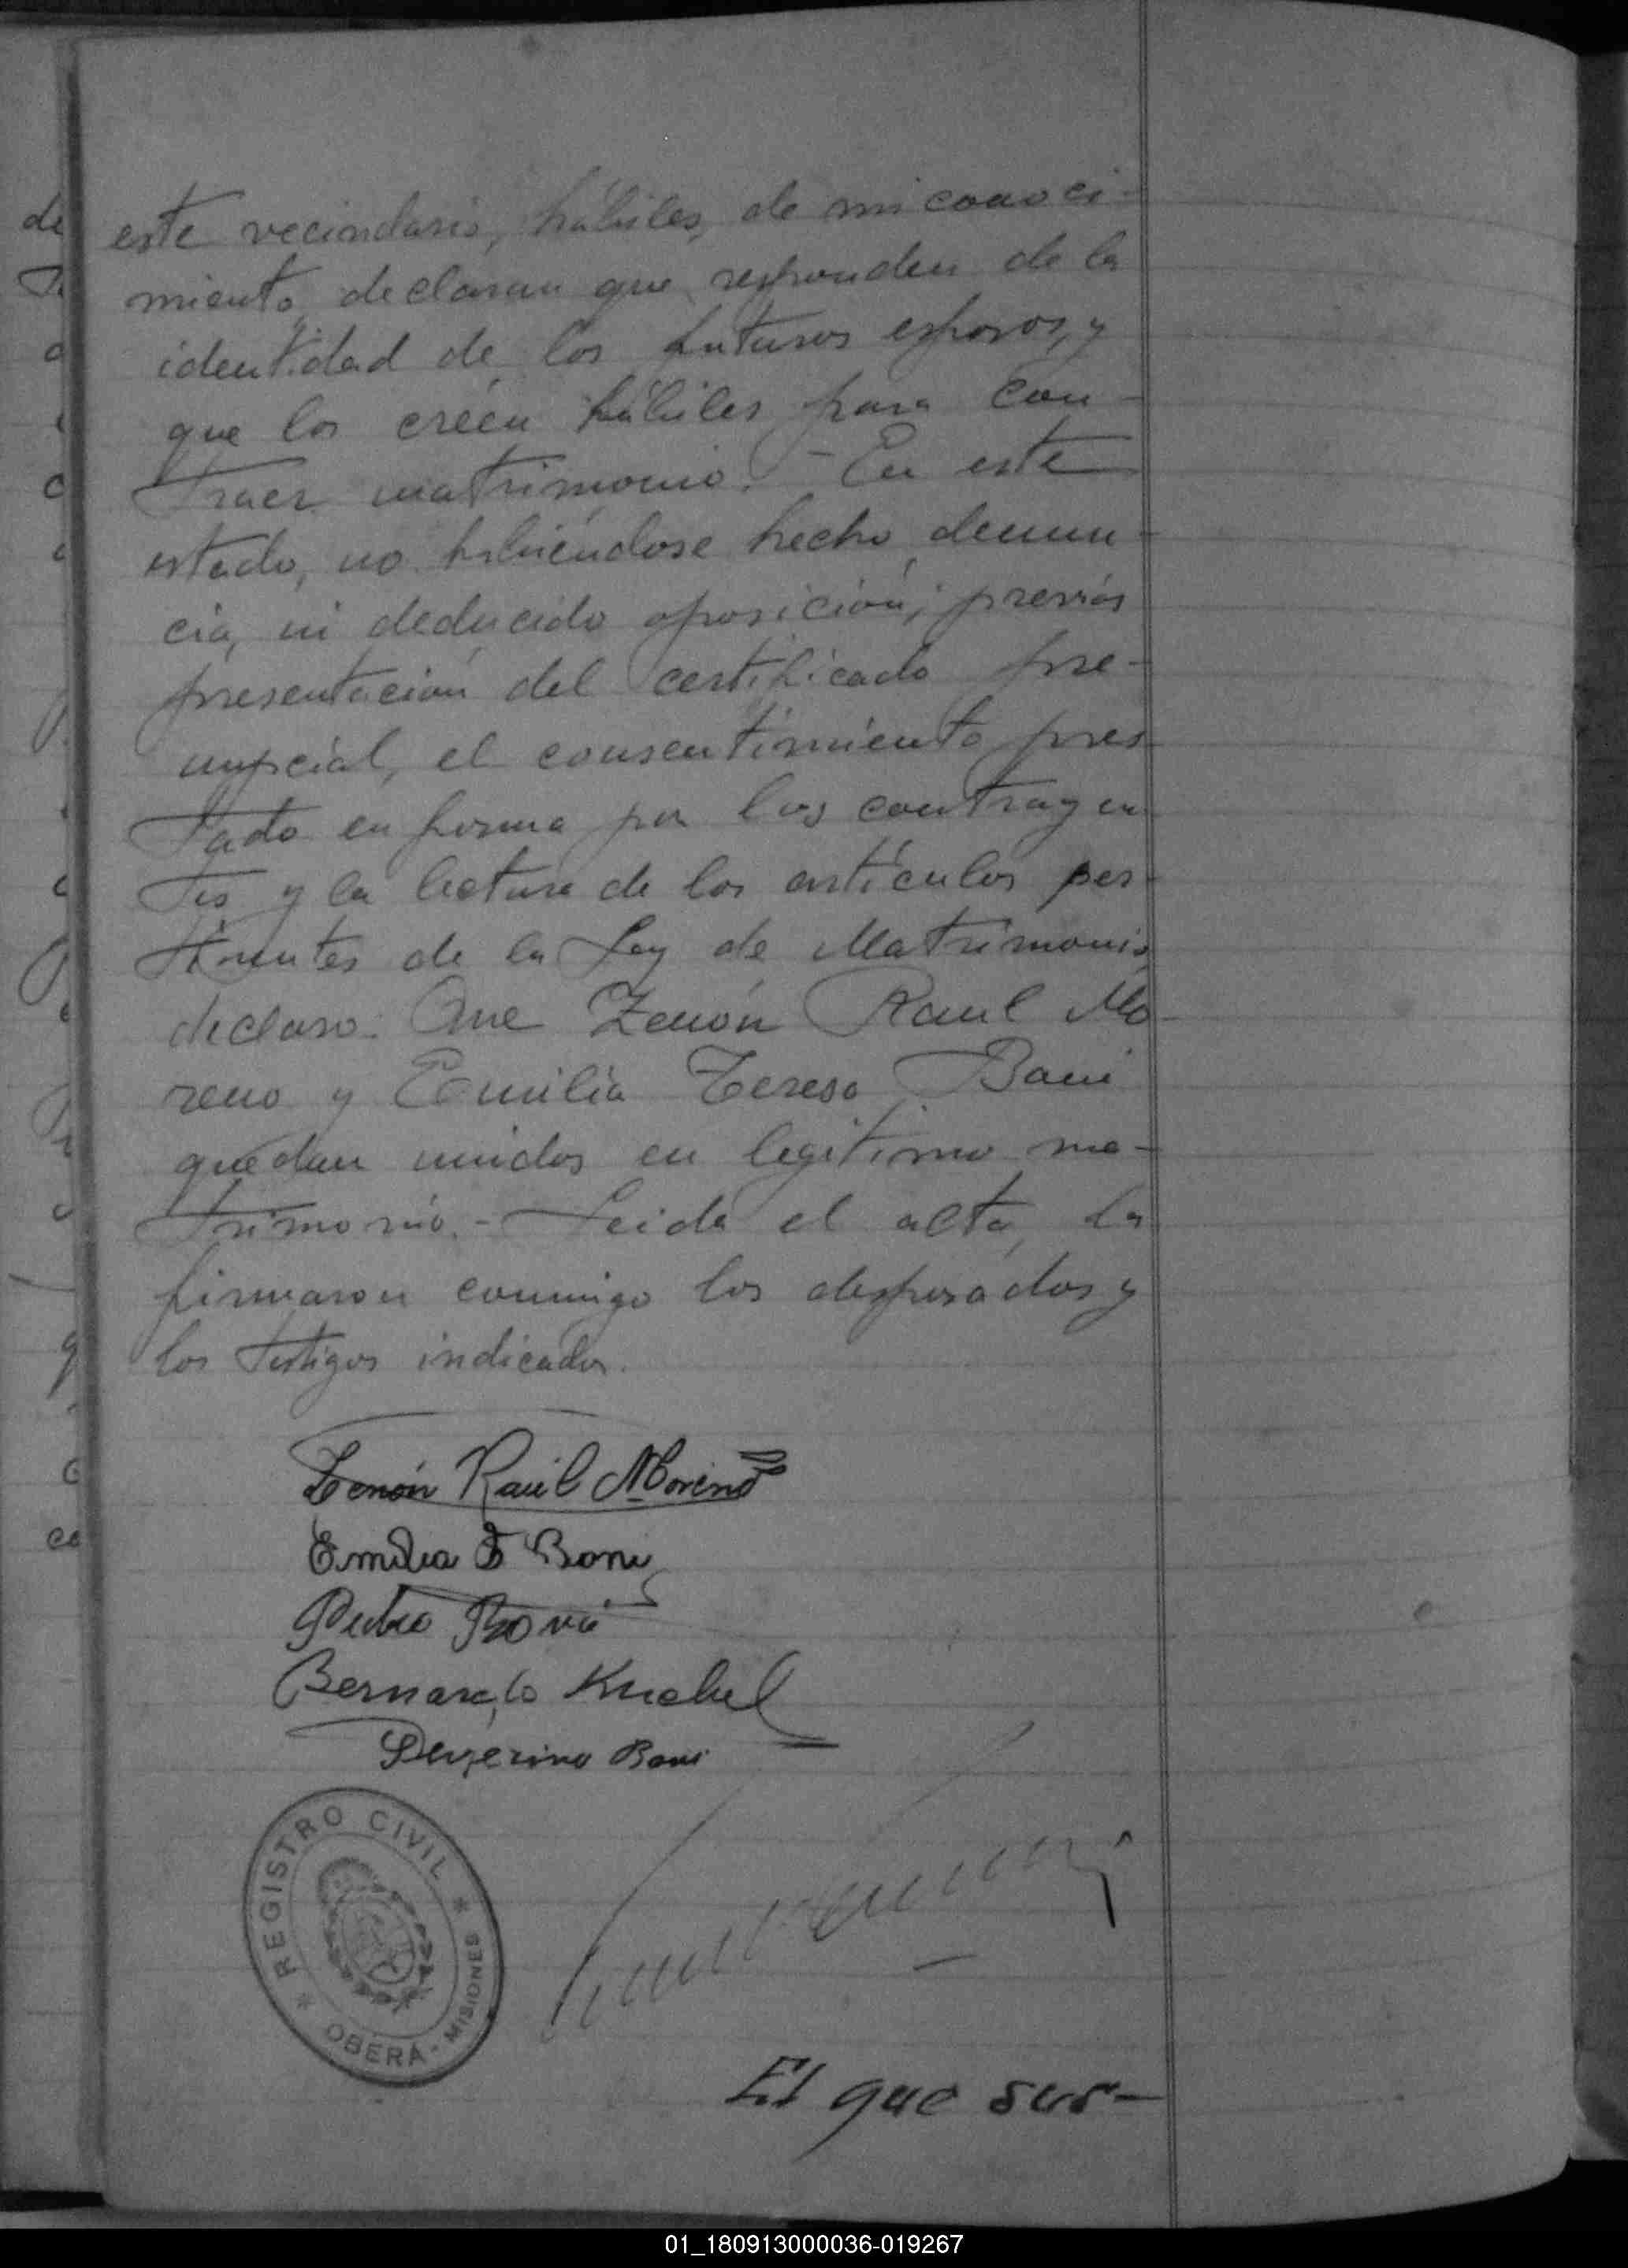 este vecindario, hábiles, de mi conoci-
miento, declaran que responden de la
identidad de los futuros esposos, y
que los créen hábiles para con-
traer matrimonio. - En este
estado, no habiéndose hecho denun-
cia, ni deducido oposición; previas
presentación del certificado pre-
nupcial, el consentimiento pres-
tado en forma por los contrayen-
tes y la lectura de los artículos per-
tinentes de la Ley de Matrimonio
declaro: Que Zenón Raul Mo-
reno y Emilia Teresa Boni
quedan unidos en legítimo ma-
trimonio. - Leida el acta, la
firmaron conmigo los desposados y
los testigos indicados.
Zenón Raúl Moreno
Emilia T Boni
Pedro Boni
Bernardo Knebel
Boni
REGISTRO CIVIL
OBERÁ - MISIONES
El que sus-
01_180913000036-019267